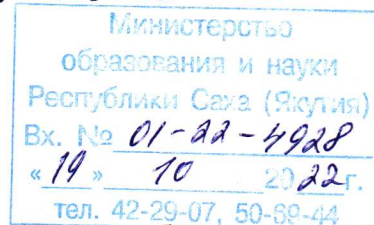 Министерство
образования и науки
Республики Саха (Якутия)
Вх. № 01-22-4928
«19» 10 2022г.
тел. 42-29-07, 50-69-44